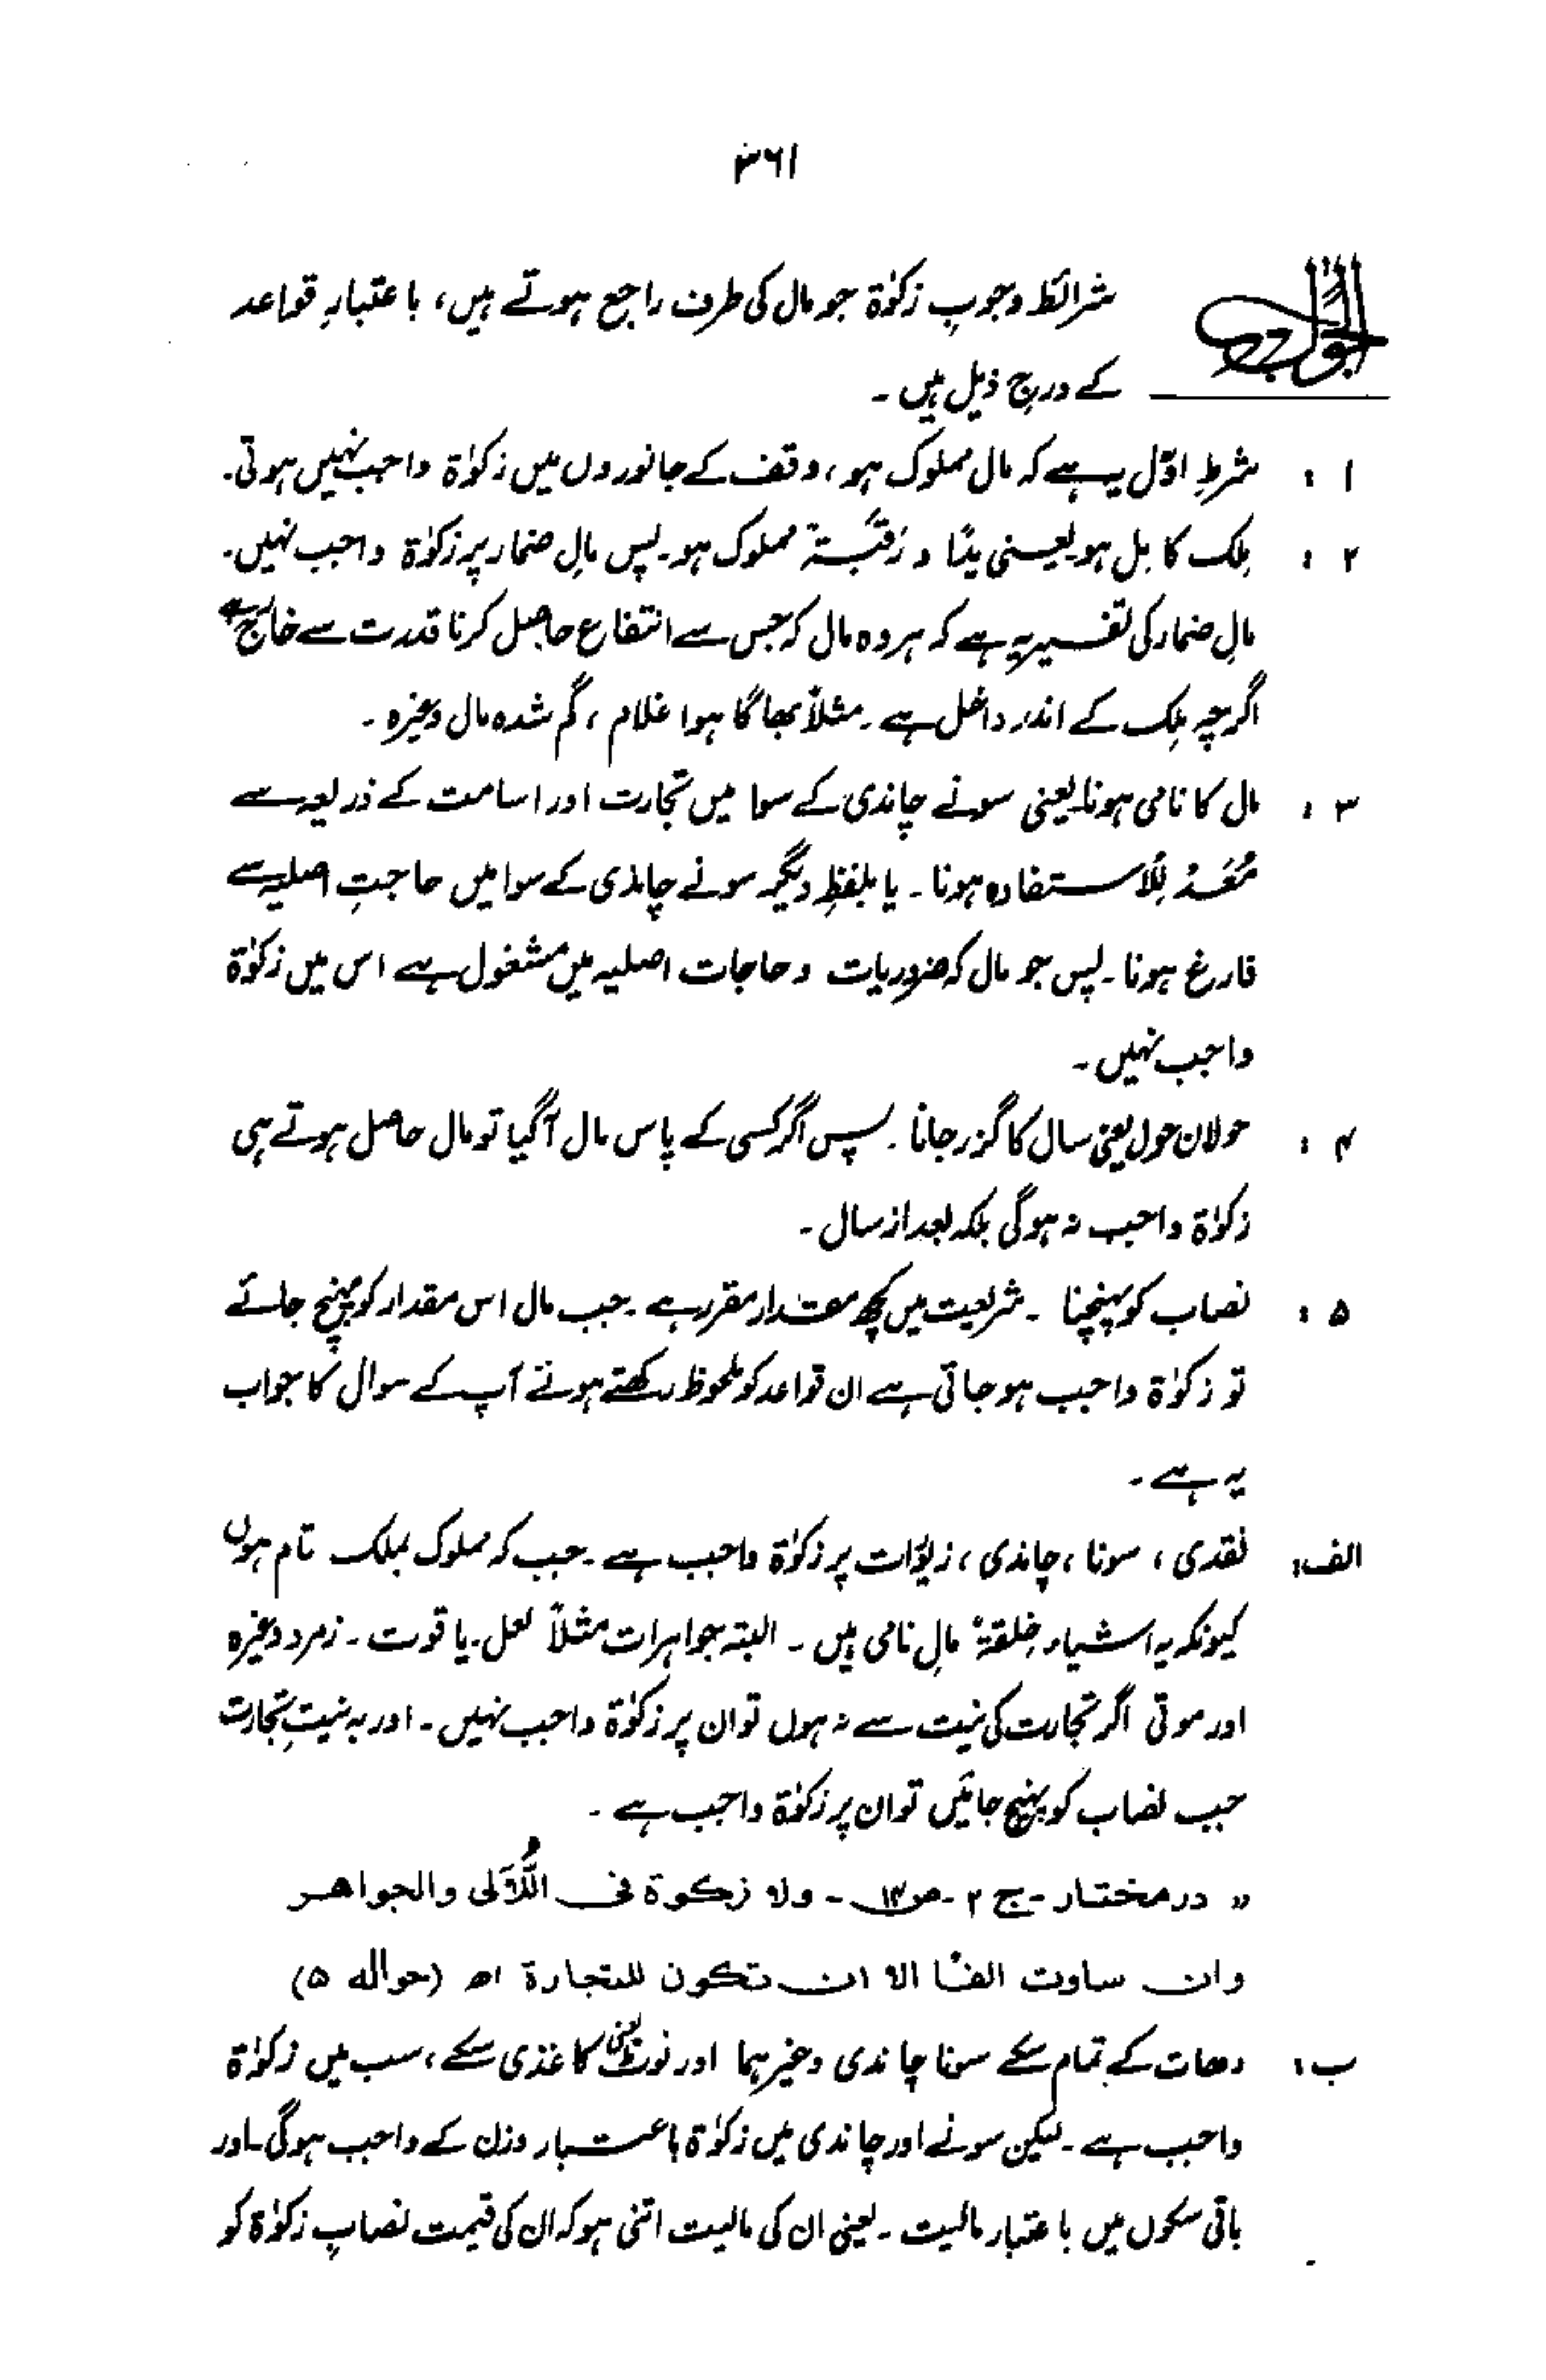 ۳۶۱
الجواب
شرائط وجوبِ زکوٰۃ جو مال کی طرف راجع ہوتے ہیں، باعتبارِ قواعد
کے درج ذیل ہیں ۔
۱ : شرطِ اوّل یہ ہے کہ مال مملوک ہو، وقف کے جانوروں میں زکوٰۃ واجب نہیں ہوتی۔
۲ : مِلک کامِل ہو یعنی یدًا و رَقَبَۃً مملوک ہو۔ پس مالِ ضمار پر زکوٰۃ واجب نہیں۔
مالِ ضمار کی تفسیر یہ ہے کہ ہر وہ مال کہ جس سے انتفاع حاصل کرنا قدرت سے خارج ہے
اگرچہ مِلک کے اندر داخل ہے ۔ مثلاً بھاگا ہوا غلام ، گم شدہ مال وغیرہ ۔
۳ : مال کا نامی ہونا یعنی سونے چاندی کے سوا میں تجارت اور اسامت کے ذریعہ سے
مُعَدّ لِلاستفادہ ہونا ۔ یا بلفظِ دیگر سونے چاندی کے سوا میں حاجتِ اصلیہ سے
فارغ ہونا ۔ پس جو مال کہ ضروریات و حاجات اصلیہ میں مشغول ہے اس میں زکوٰۃ
واجب نہیں ۔
۴ : حولان حول یعنی سال کا گزر جانا ۔ پس اگر کسی کے پاس مال آگیا تو مال حاصل ہوتے ہی
زکوٰۃ واجب نہ ہوگی بلکہ بعد از سال ۔
۵ : نصاب کو پہنچنا ۔ شریعت میں کچھ مقدار مقرر ہے ۔ جب مال اس مقدار کو پہنچ جائے
تو زکوٰۃ واجب ہوجاتی ہے ان قواعد کو ملحوظ رکھتے ہوئے آپ کے سوال کا جواب
یہ ہے ۔
الف: نقدی ، سونا ، چاندی ، زیورات پر زکوٰۃ واجب ہے ۔ جب کہ مملوک بملک تام ہوں
کیونکہ یہ اشیاء خِلقۃً مالِ نامی ہیں ۔ البتہ جواہرات مثلاً لعل ۔ یاقوت ۔ زمرد وغیرہ
اور موتی اگر تجارت کی نیت سے نہ ہوں تو ان پر زکوٰۃ واجب نہیں ۔ اور بہ نیتِ تجارت
جب نصاب کو پہنچ جائیں تو ان پر زکوٰۃ واجب ہے ۔
" درمختار ۔ ج ۲ ۔ ۔ ولا زکوة فی اللُّآلی والجواهر
وان ساوت الفًا الا ان تکون للتجارة اھ (حواله ۵)
ب : دھات کے تمام سکے سونا چاندی وغیرہما اور نوٹ یعنی کاغذی سکے ، سب میں زکوٰۃ
واجب ہے ۔ لیکن سونے اور چاندی میں زکوٰۃ باعتبار وزن کے واجب ہوگی ۔ اور
باقی سکوں میں باعتبار مالیت ۔ یعنی ان کی مالیت اتنی ہو کہ ان کی قیمت نصابِ زکوٰۃ کو